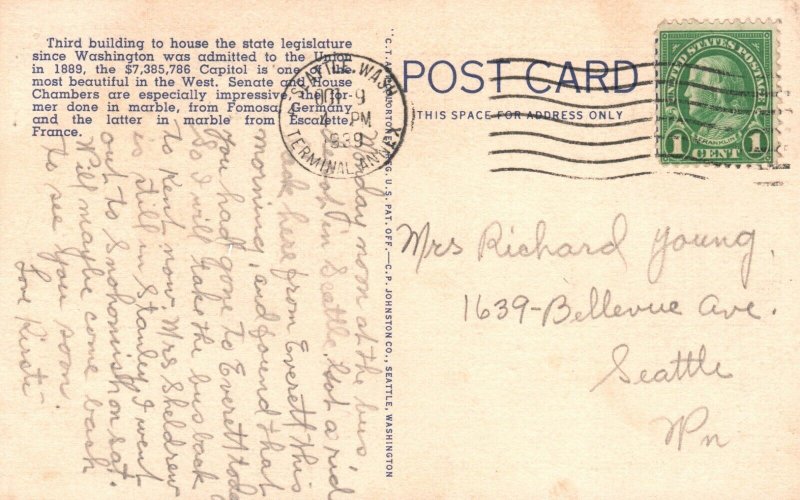 Third building to house the state legislature
since Washington was admitted to the Union
in 1889, the $7,385,786 Capitol is one of the
most beautiful in the West. Senate and House
Chambers are especially impressive, the for-
mer done in marble, from Fomosa, Germany
and the latter in marble from Escalette,
France.
day noon at the bus
in Seattle. Got a ride
back here from Everett this
morning, and found that
you had gone to Everett today
So I will take the bus back
to Kent now. Mrs Sheldrew
is still in Stanley. I went
out to Snohomish on Sat.
Will maybe come back
to see you soon.
Love
C.T. ART
REG. U.S. PAT. OFF.—C.P. JOHNSTON CO., SEATTLE, WASHINGTON
POST CARD
THIS SPACE FOR ADDRESS ONLY
SEATTLE, WASH.
9
PM
1939
TERMINAL ANNEX
UNITED STATES POSTAGE
FRANKLIN
1 CENT 1
Mrs Richard Young,
1639-Bellevue Ave.
Seattle
Wn